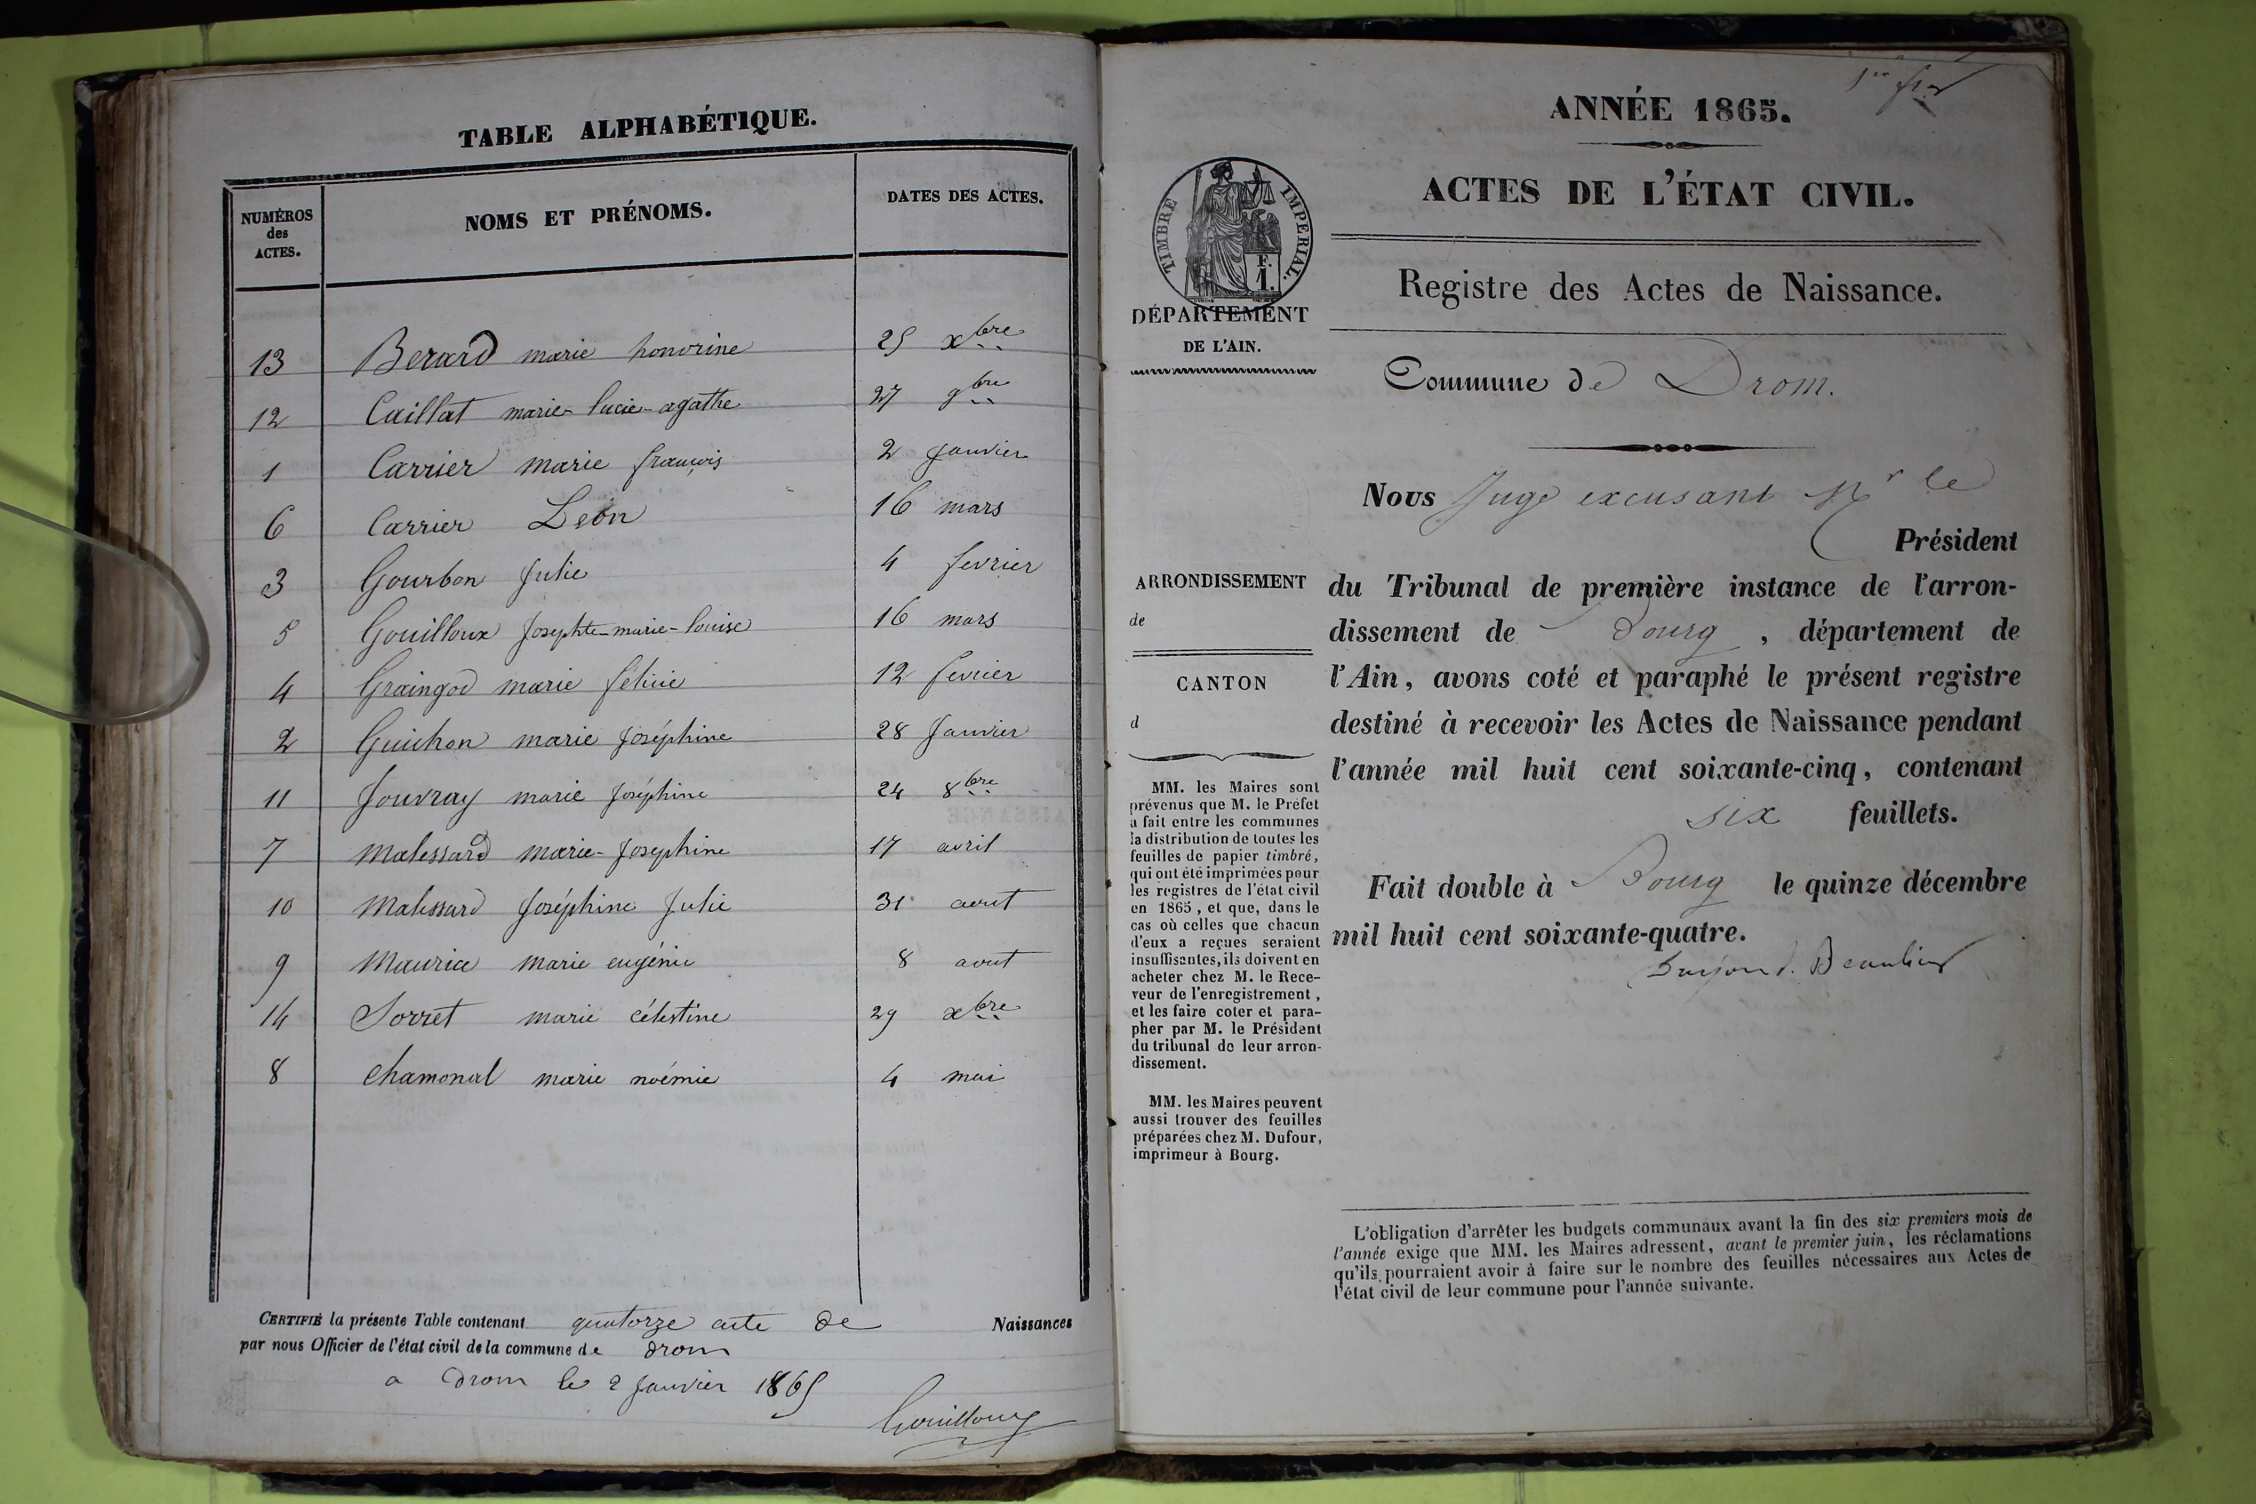 TABLE ALPHABÉTIQUE.
NUMÉROS des ACTES. NOMS ET PRÉNOMS. DATES DES ACTES.
13 Berard marie honorine 25 xbre
12 Caillat marie-lucie-agathe 27 9bre
1 Carrier marie françois 2 Janvier
6 Carrier Léon 16 mars
3 Gourbon Julie 4 fevrier
5 Gouilloux Josephte-marie-louise 16 mars
4 Graingod marie félicie 12 fevrier
2 Guichon marie Joséphine 28 Janvier
11 Jouvray marie Joséphine 24 8bre
7 Malessard marie-Josephine 17 avril
10 Malessard Joséphine Julie 31 aout
9 Maurice marie eugénie 8 aout
14 Sorret marie célestine 29 xbre
8 Chamonal marie noémie 4 mai
CERTIFIÉ la présente Table contenant quatorze acte de Naissances
par nous Officier de l'état civil de la commune de drom
a Drom le 2 Janvier 1865
Gouilloux
ANNÉE 1865.
ACTES DE L'ÉTAT CIVIL.
TIMBRE IMPERIAL.
F.
1.
DÉPARTEMENT
DE L'AIN.
Registre des Actes de Naissance.
Commune de Drom.
Nous Juge excusant Mr le
Président
du Tribunal de première instance de l'arron-
dissement de Bourg, département de
l'Ain, avons coté et paraphé le présent registre
destiné à recevoir les Actes de Naissance pendant
l'année mil huit cent soixante-cinq, contenant
six feuillets.
Fait double à Bourg le quinze décembre
mil huit cent soixante-quatre.
Beaulieu
ARRONDISSEMENT
de
CANTON
d
MM. les Maires sont
prévenus que M. le Préfet
a fait entre les communes
la distribution de toutes les
feuilles de papier timbré,
qui ont été imprimées pour
les registres de l'état civil
en 1865, et que, dans le
cas où celles que chacun
d'eux a reçues seraient
insuffisantes, ils doivent en
acheter chez M. le Rece-
veur de l'enregistrement,
et les faire coter et para-
pher par M. le Président
du tribunal de leur arron-
dissement.
MM. les Maires peuvent
aussi trouver des feuilles
préparées chez M. Dufour,
imprimeur à Bourg.
L'obligation d'arrêter les budgets communaux avant la fin des six premiers mois de
l'année exige que MM. les Maires adressent, avant le premier juin, les réclamations
qu'ils pourraient avoir à faire sur le nombre des feuilles nécessaires aux Actes de
l'état civil de leur commune pour l'année suivante.